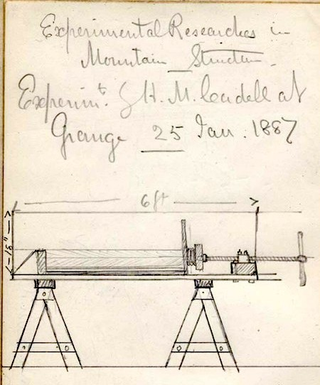 Experimental Researches in
Mountain Structure.
Experimts. by H. M. Cadell at
Grange 25 Jan. 1887
6 ft